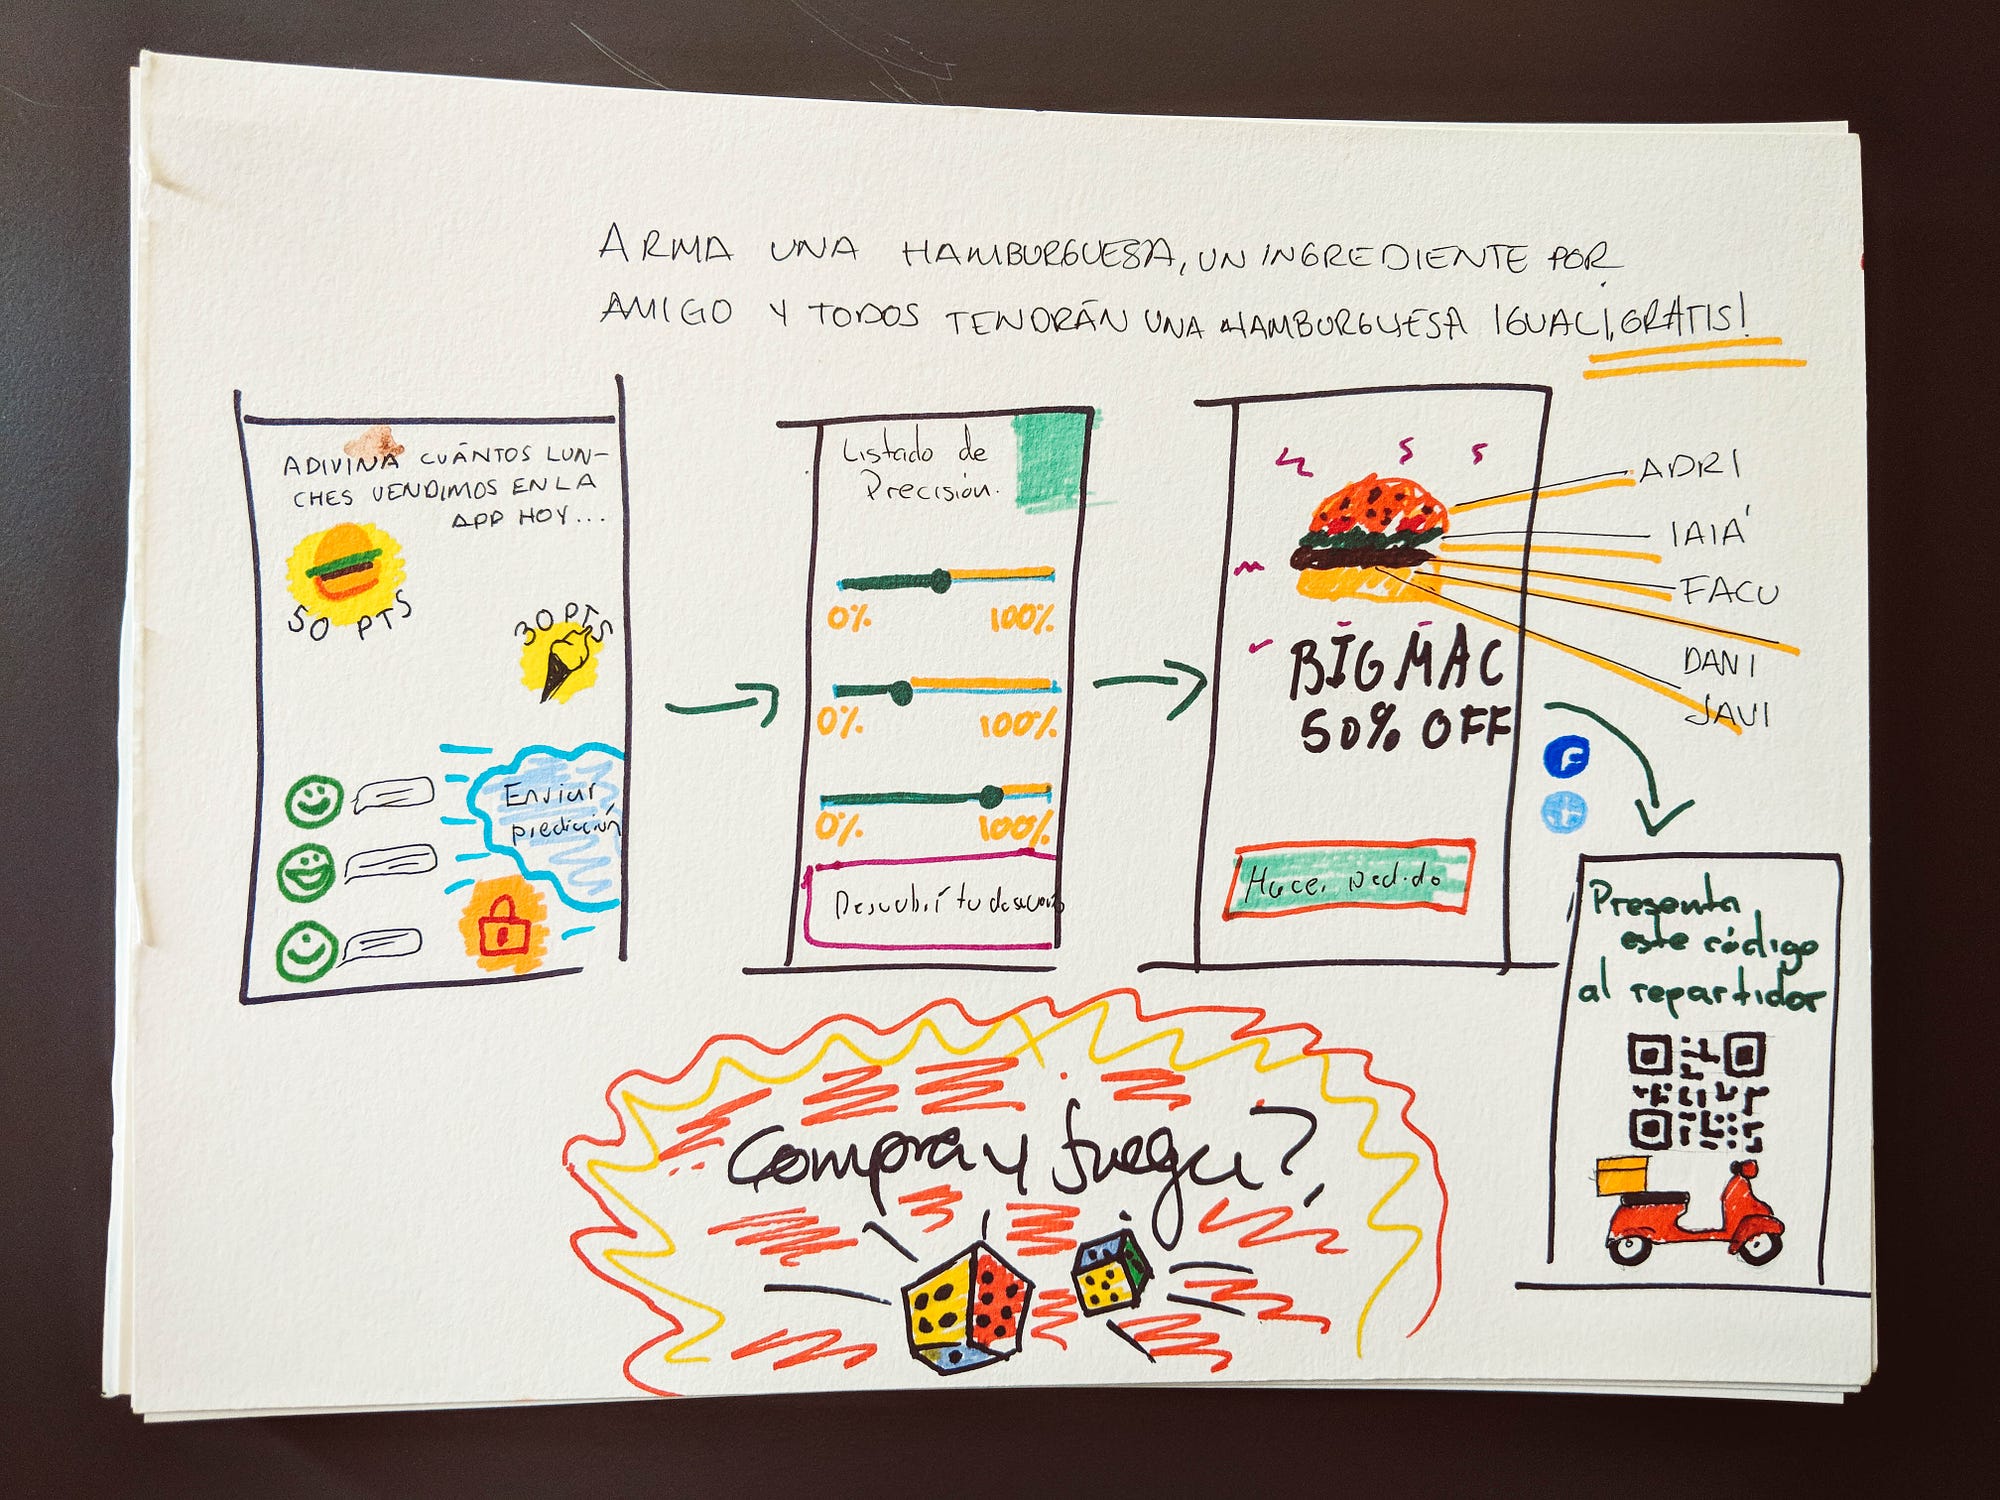 ARMA UNA HAMBURGUESA, UN INGREDIENTE POR
AMIGO Y TODOS TENDRÁN UNA HAMBURGUESA IGUAL¡, GRATIS!
ADIVINA CUÁNTOS LUN-
CHES VENDIMOS EN LA
APP HOY...
50 PTS
30 PTS
Enviar
predicción
Listado de
Precisión.
0% 100%
0% 100%
0% 100%
Descubrí tu
BIG MAC
50% OFF
Hacer pedido
ADRI
IAIÁ
FACU
DANI
JAVI
f
Presenta
este código
al repartidor
Compra y juega?